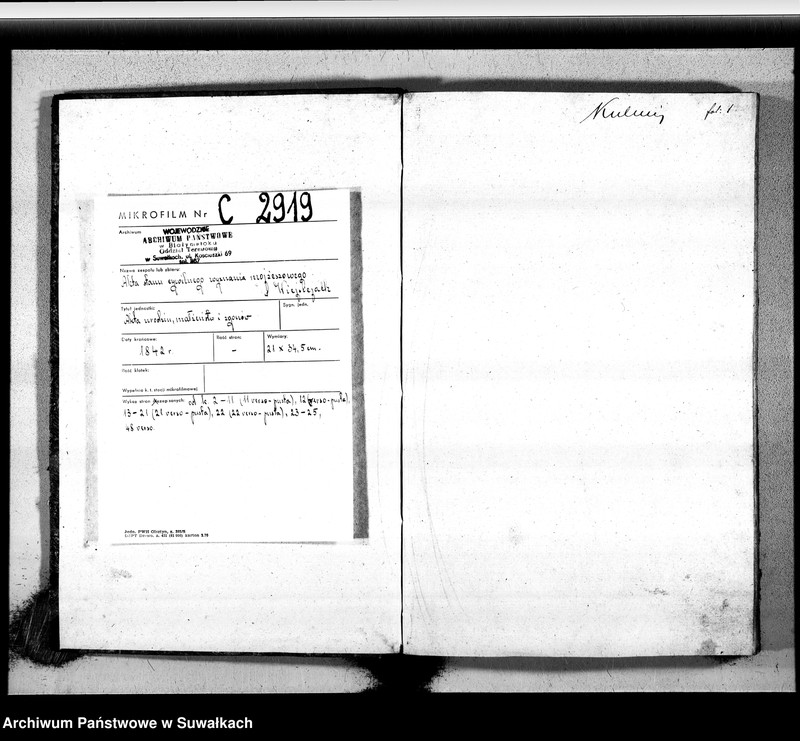 fol: 1
MIKROFILM Nr C 2919
Archiwum
WOJEWÓDZKIE
ARCHIWUM PAŃSTWOWE
w Białymstoku
Oddział Terenowy
w Suwałkach, ul. Kościuszki 69
Nazwa zespołu lub zbioru:
Akta stanu cywilnego wyznania mojżeszowego
w Wiejsiejach
Tytuł jednostki:
Sygn. jedn.
Akta urodzin, małżeństw i zgonów
Daty krańcowe:
Ilość stron:
Wymiary:
1842 r
-
21 x 34,5 cm.
Ilość klatek:
Wypełnia k. t. stacji mikrofilmowej
Wykaz stron od k. 2-11 (11 verso-pusta), 12 (verso-pusta),
13-21 (21 verso-pusta), 22 (22 verso-pusta), 23-25,
48 verso.
Archiwum Państwowe w Suwałkach